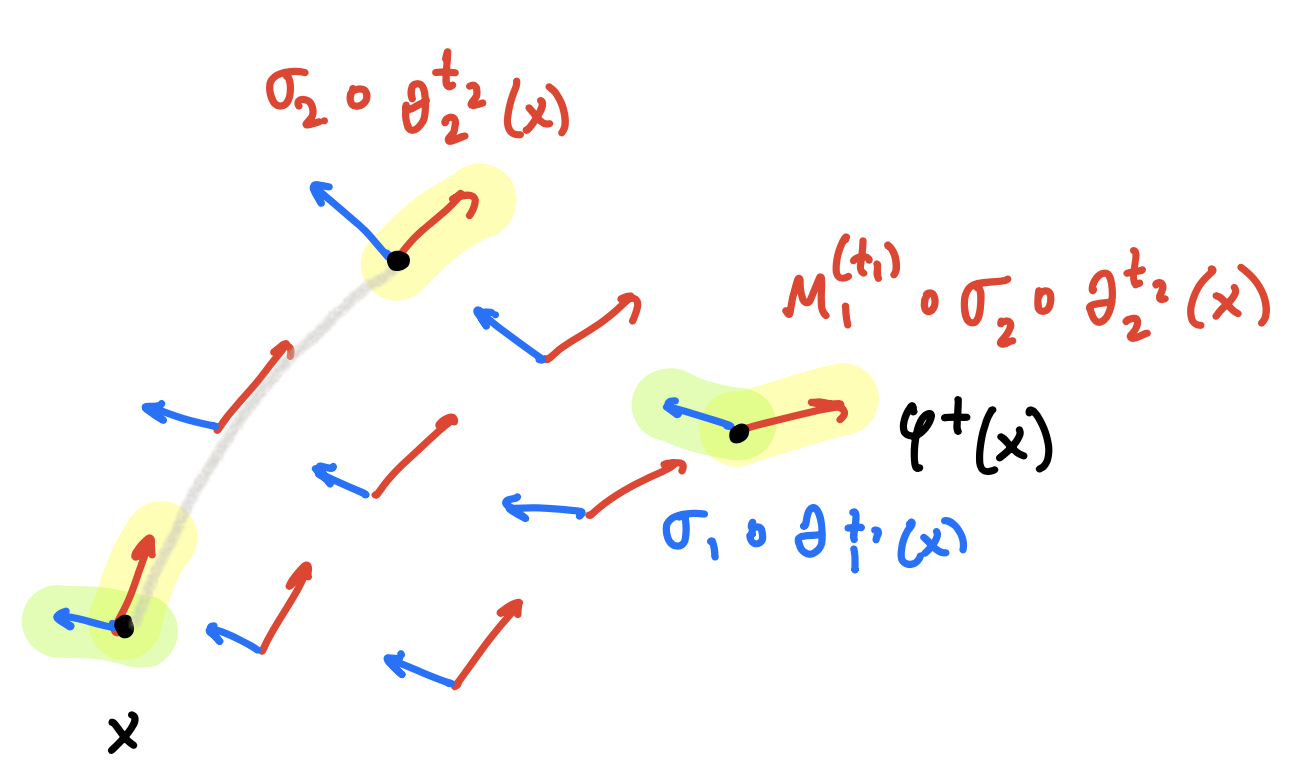 σ₂ ∘ ∂₂^{t₂}(x)
M₁^{(t₁)} ∘ σ₂ ∘ ∂₂^{t₂}(x)
φ^t(x)
σ₁ ∘ ∂₁^{t₁}(x)
x